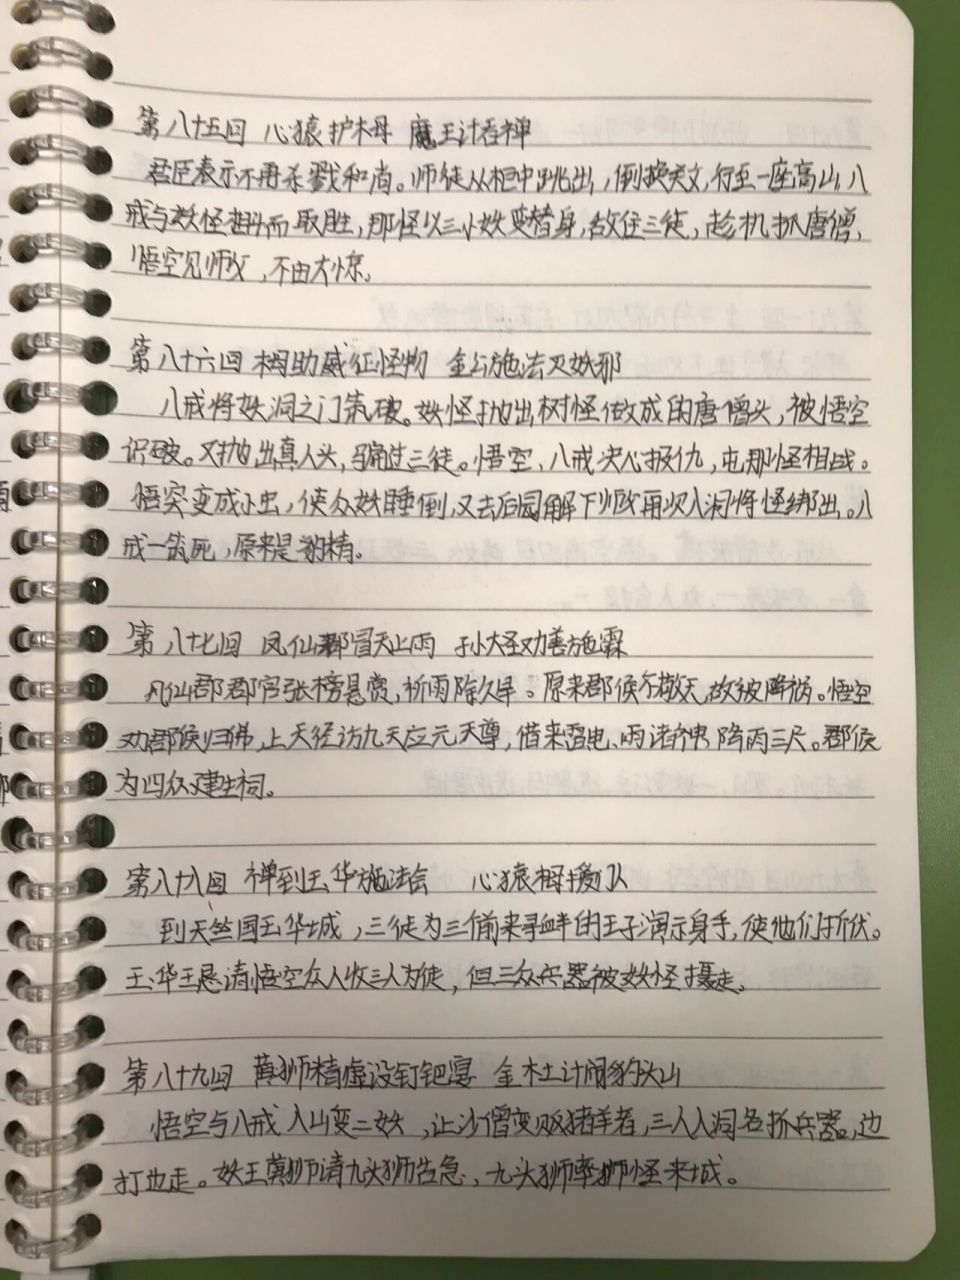 第八十五回 心猿护木母 魔王计吞禅
君臣表示不再杀戮和尚。师徒从柜中跳出,倒换关文,行至一座高山,八
戒与妖怪斗而取胜,那怪以三小妖变替身,敌住三徒,趁机抓唐僧,
悟空见师父,不由大惊。
第八十六回 木母助威征怪物 金公施法灭妖邪
八戒将妖洞之门筑破。妖怪抛出树怪做成的唐僧头,被悟空
识破。又抛出真人头,骗过三徒。悟空、八戒决心报仇,屯那怪相战。
悟空变成小虫,使众妖睡倒,又去后园解下师父再次入洞将怪绑出。八
戒一筑死,原来是豹精。
第八十七回 凤仙郡冒天止雨 孙大圣劝善施霖
凡仙郡郡官张榜悬赏,祈雨除久旱。原来郡侯不敬天,故被降祸。悟空
劝郡侯归佛,上天径访九天应元天尊,借来雷电、雨诸神 降雨三尺。郡侯
为四众建生祠。
第八十八回 禅到玉华施法会 心猿木母授门人
到天竺国玉华城,三徒为三个前来寻衅的王子演示身手,使他们折伏。
玉华王恳请悟空众人收三人为徒,但三众兵器被妖怪摄走。
第八十九回 黄狮精虚设钉钯宴 金木土计闹豹头山
悟空与八戒入山变二妖,让沙僧变贩猪羊者,三人入洞各抓兵器,边
打边走。妖王黄狮请九头狮告急,九头狮率狮怪来城。